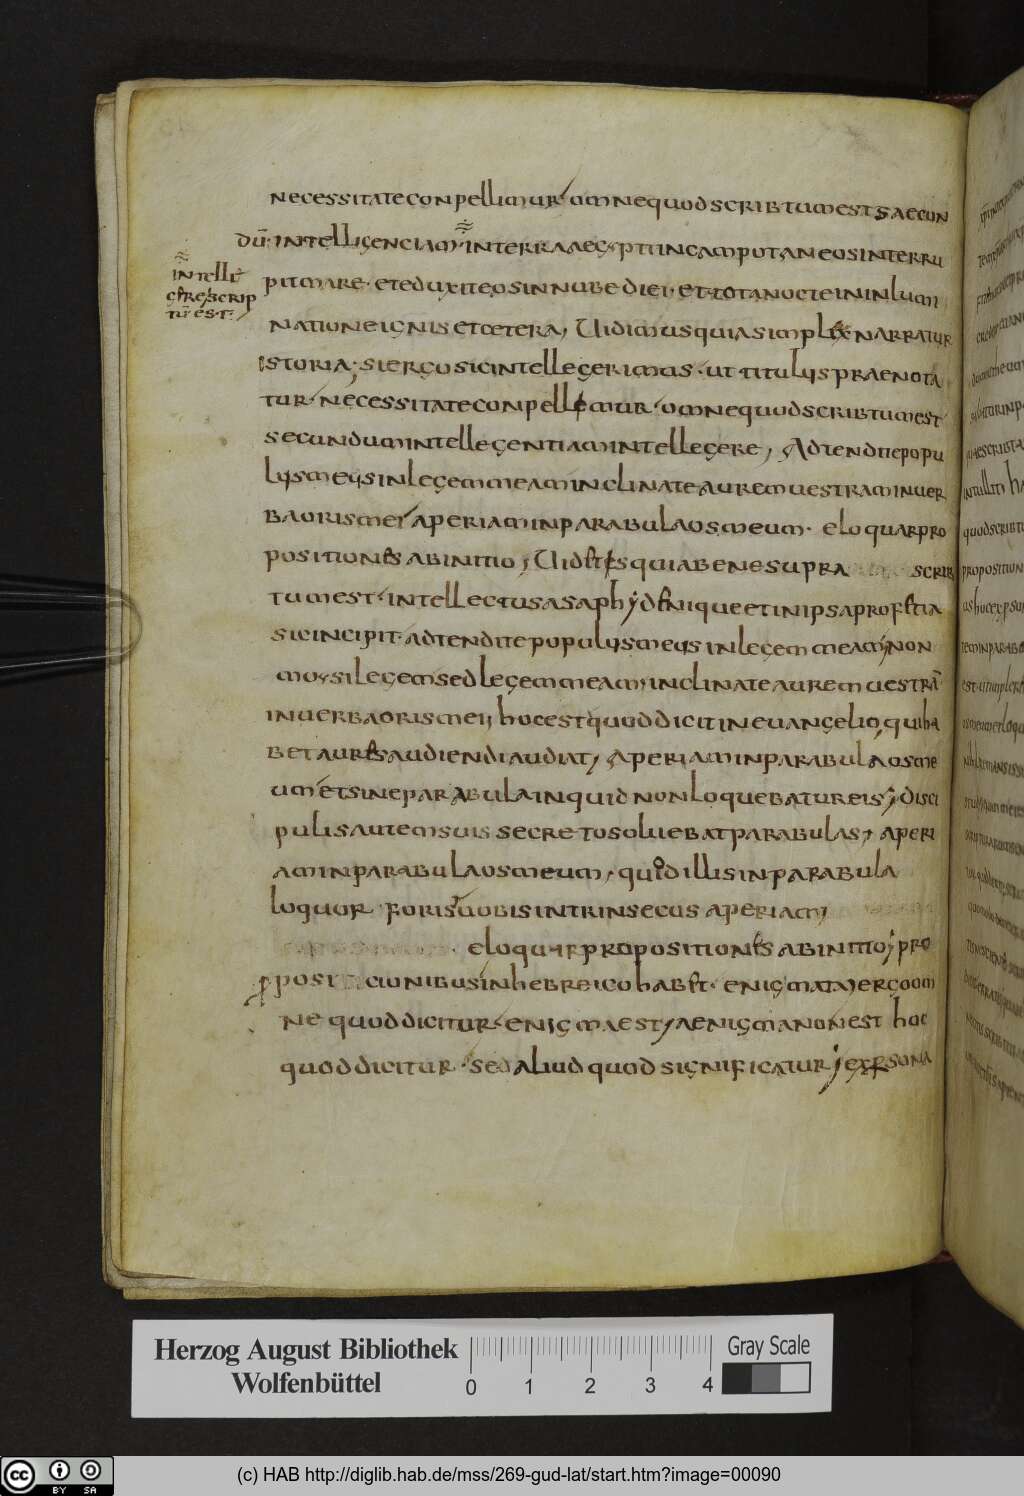 necessitate conpellimur omne quod scribtum est saecun
dū intelligenciam in terra aeg&pti in campo taneos interru
pit mare et eduxit eos in nube diei et tota nocte in inlumi
intelle
natione ignis et cetera, Uidimus quia simplex narratur
gere scrip
tū est
istoria; si ergo sic intellegerimus ut titulus praenota
tur necessitate conpellimur omne quod scribtum est
secundum intellegentiam intellegere, Adtendite popu
lus meus in legem meam inclinate aurem uestram in uer
ba oris mei aperiam in parabula os meum eloquar pro
positiones ab initio, Uid&is quia bene supra scrib
tum est intellectus asaph ydenique et in ipsa prof&ia
sic incipit adtendite populus meus in legem meam non
mosi legem sed legem meam inclinate aurem uestrā
in uerba oris mei, hoc est quod dicit in euangelio qui ha
bet aures audiendi audiat, Aperiam in parabula os me
um et sine parabula inquid non loquebatur eis, disci
pulis autem suis secreto soluebat parabulas, aperi
am in parabula os meum, quod illis in parabula
loquor foris uobis intrinsecus aperiam,
eloquar propositiones ab initio, pro
posicionibus in hebreico hab&t enigmata, ergo om
ne quod dicitur enigma est, aenigma non est hoc
quod dicitur sed aliud quod significatur, ex persona
Herzog August Bibliothek
Wolfenbüttel
0 1 2 3 4
Gray Scale
cc BY SA
(c) HAB http://diglib.hab.de/mss/269-gud-lat/start.htm?image=00090